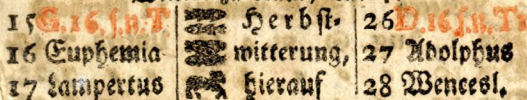 15 G. 16 s. n. T Herbst- 26 D. 16 s. n. T
16 Euphemia witterung, 27 Adolphus
17 Lampertus hierauf 28 Wencesl.